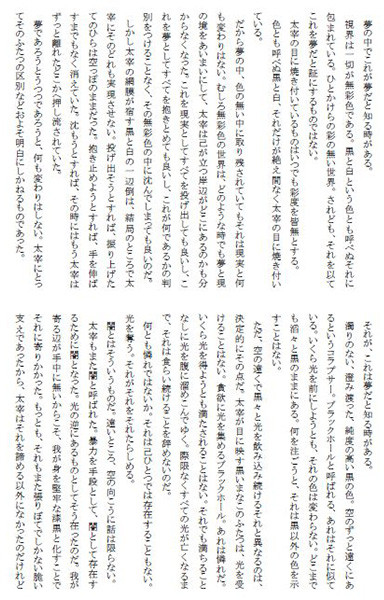 夢の中でこれが夢だと知る時がある。
視界は一切が無彩色である。黒と白という色とも呼べぬそれに
包まれている。ひとかけらの彩の無い世界。されども、それを以て
これを夢だと証にするものではない。
太宰の目に焼き付いているものはいつでも彩度を皆無とする。
色とも呼べぬ黒と白、それだけが絶え間なく太宰の目に焼き付い
ている。
だから夢の中、色の無い中に取り残されていてもそれは現実と何
も変わりはない。むしろ無彩色の世界は、どのような時でも夢と現
の境をあいまいにして、太宰は己が立つ岸辺がどこにあるのかも分
からなくなった。これを現実としてすべてを投げ出しても良いし、こ
れを夢としてすべてを抱きとめても良いし、これが何であるかの判
別をつけることなく、その無彩色の中に沈んでしまっても良いのだ。
しかし太宰の網膜が宿す黒と白の一辺倒は、結局のところで太
宰にそのどれも実現させない。投げ出そうとすれば、振り上げた
てのひらは空っぽのままだった。抱き止めようとすれば、手を伸ば
すまでもなく消えていた。沈もうとすれば、その時にはもう太宰は
ずっと離れたどこかへ押し流されていた。
夢であろうとうつつであろうと、何も変わりはしない。太宰にとっ
てそのふたつの区別などおよそ明白にしかねるものであった。
それが、これは夢だと知る時がある。
濁りのない、澄み渡った、純度の高い黒の色。空のずっと遠くにあ
るというコラプサー。ブラックホールと呼ばれる、あれはそれに似て
いる。いくら光を前にしようとも、それの色は変わらない。どこまで
も滔々と黒のままにある。何を注ごうと、それは黒以外の色を示
すことはない。
ただ、空の遠くで黒々と光を飲み込み続けるそれと異なるのは、
決定的にその点だ。太宰が目に映す黒いまなこのふたつは、光を受
けることはない。貪欲に光を集めるブラックホール。あれは憐れだ。
いくら光を得ようとも満たされることはない。それでも満ちること
なしに光を腹に溜めこんでゆく、際限なくすべての光が亡くなるま
で、それは食らい続けることを辞めないのだ。
何とも憐れではないか。それは己ひとつでは存在することもない。
光を奪う。それがそれをそれたらしめる。
闇とはそういうものだ。遠いところ、空の向こうに話は限らない。
太宰もまた闇と呼ばれた。暴力を手段として、闇として存在す
るために闇となった。光の逆にあるものとしてそう在ったのだ。我が
寄る辺が手中に無いからこそ、我が身を堅牢な漆黒と化すことで
それに寄りかかった。もっとも、それもまた張りぼてでしかない脆い
支えであったから、太宰はそれを諦める以外になかったのだけれど